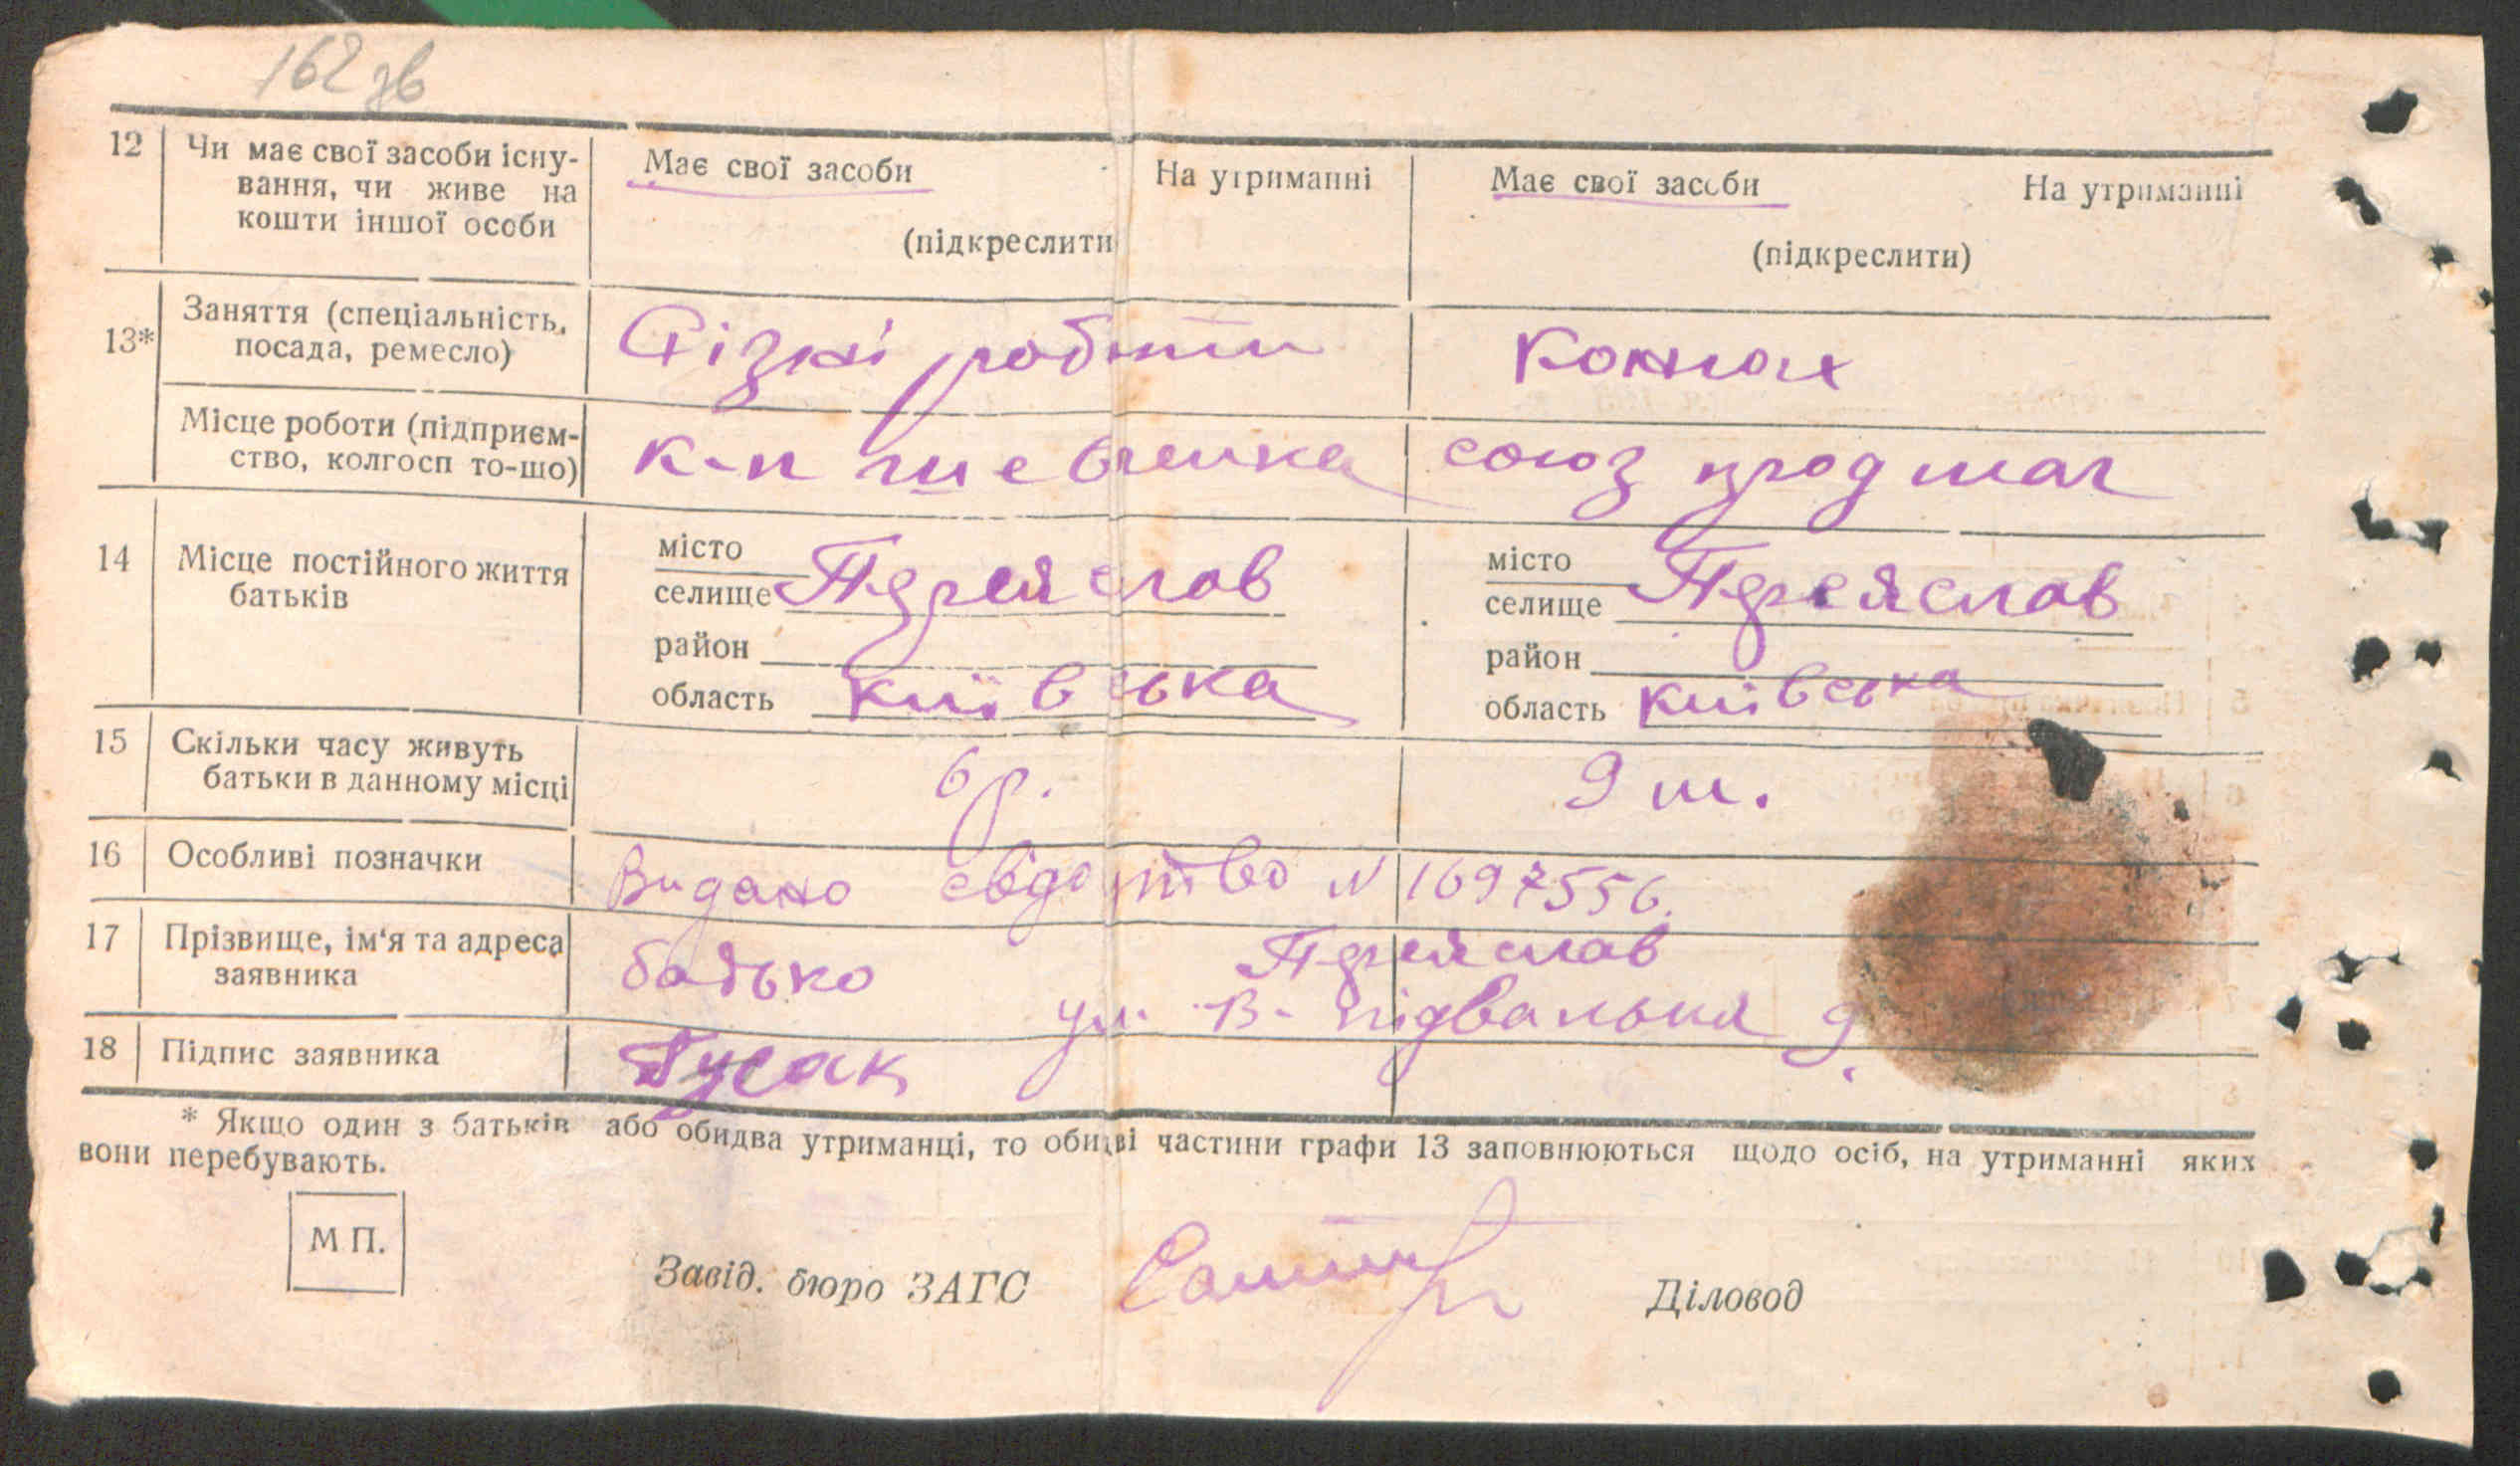 162 зв
12 Чи має свої засоби існу-
вання, чи живе на
кошти іншої особи
Має свої засоби На утриманні
(підкреслити
Має свої засоби На утриманні
(підкреслити)
13* Заняття (спеціальність,
посада, ремесло)
Різні роботи
Конюх
Місце роботи (підприєм-
ство, колгосп то-що)
к-п Шевченка
союз прод маг
14 Місце постійного життя
батьків
місто
селище Переяслав
район
область Київська
місто
селище Переяслав
район
область Київська
15 Скільки часу живуть
батьки в данному місці
6 р.
9 м.
16 Особливі позначки
Видано свідотство N 1697556.
17 Прізвище, ім'я та адреса
заявника
батько Переяслав
ул. В- Підвальна 9.
18 Підпис заявника
Гусак
* Якщо один з батьків або обидва утриманці, то обидві частини графи 13 заповнюються щодо осіб, на утриманні яких
вони перебувають.
М П.
Завід. бюро ЗАГС
Діловод